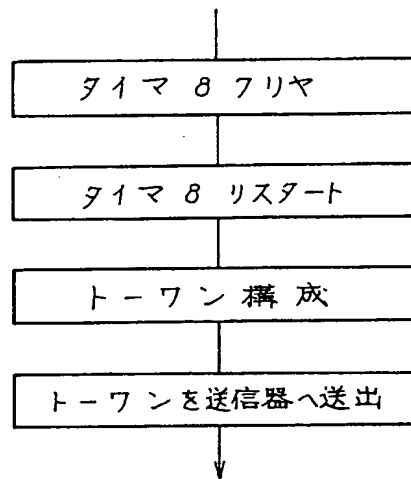 タイマ 8 クリヤ
タイマ 8 リスタート
トークン構成
トークンを送信器へ送出